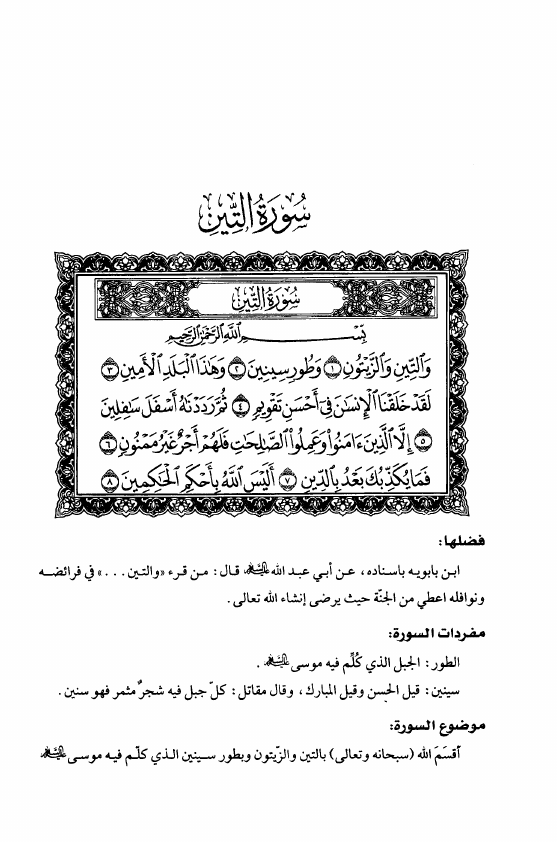 سُورَةُ التِّينِ
سُورَةُ التِّينِ
بِسْمِ اللَّهِ الرَّحْمَٰنِ الرَّحِيمِ
وَٱلتِّينِ وَٱلزَّيْتُونِ ١ وَطُورِ سِينِينَ ٢ وَهَٰذَا ٱلْبَلَدِ ٱلْأَمِينِ ٣
لَقَدْ خَلَقْنَا ٱلْإِنسَٰنَ فِىٓ أَحْسَنِ تَقْوِيمٍ ٤ ثُمَّ رَدَدْنَٰهُ أَسْفَلَ سَٰفِلِينَ
٥ إِلَّا ٱلَّذِينَ ءَامَنُوا۟ وَعَمِلُوا۟ ٱلصَّٰلِحَٰتِ فَلَهُمْ أَجْرٌ غَيْرُ مَمْنُونٍ ٦
فَمَا يُكَذِّبُكَ بَعْدُ بِٱلدِّينِ ٧ أَلَيْسَ ٱللَّهُ بِأَحْكَمِ ٱلْحَٰكِمِينَ ٨
فضلها:
ابن بابويه باسناده، عن أبي عبد الله عليه السلام قال: من قرء «والتين...» في فرائضه
ونوافله اعطي من الجنّة حيث يرضى إنشاء الله تعالى.
مفردات السورة:
الطور: الجبل الذي كُلِّم فيه موسى عليه السلام.
سينين: قيل الحسن وقيل المبارك، وقال مقاتل: كلّ جبل فيه شجرٌ مثمر فهو سنين.
موضوع السورة:
أقسَمَ الله (سبحانه وتعالى) بالتين والزّيتون وبطور سينين الذي كلّم فيه موسى عليه السلام